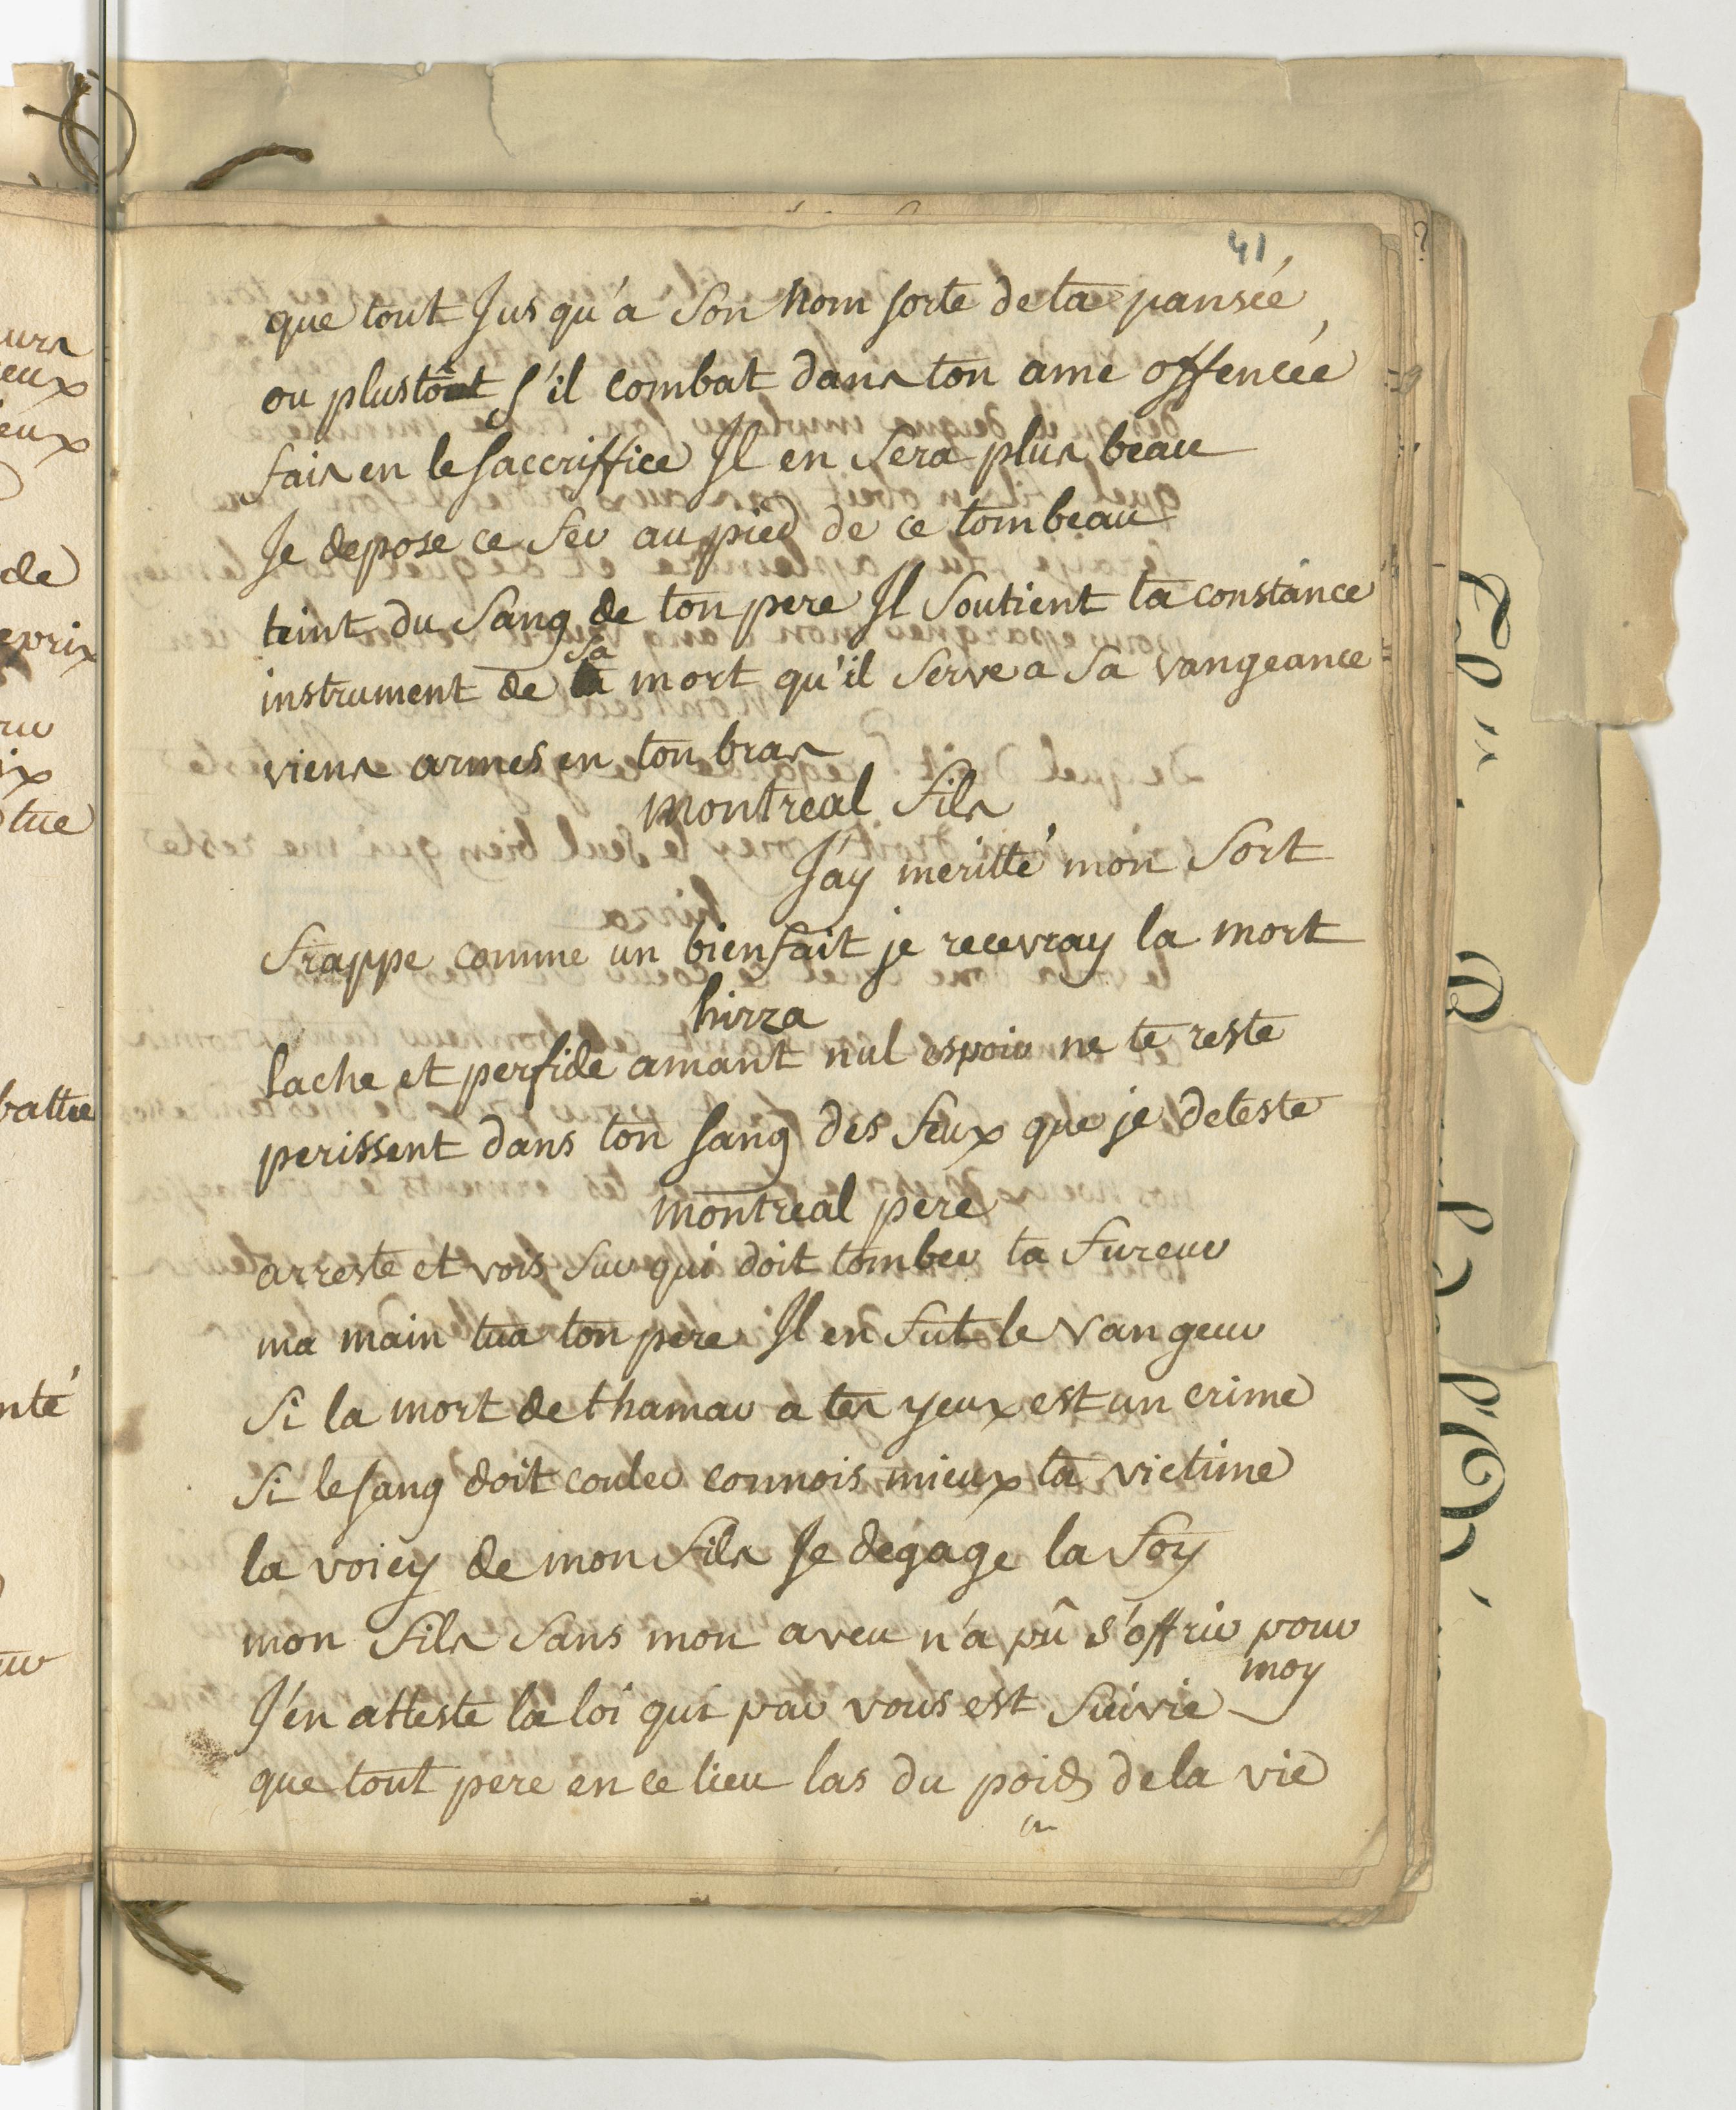 41
que tout Jusqu'a son nom sorte de ta pansée,
ou plustôt s'il combat dans ton ame offencée
fais en le saccriffice Il en sera plus beau
Je depose ce fer au pied de ce tombeau
teint du sang de ton pere Il soutient ta constance
instrument de sa mort qu'il serve a sa vangeance
viens armes en ton bras
montreal fils
J'ay meritté mon sort
frappe comme un bienfait je recevray la mort
hirza
lache et perfide amant nul espoir ne te reste
perissent dans ton sang des feux que je deteste
montreal pere
arreste et vois sur qui doit tomber ta fureur
ma main tua ton pere Il en fut le vangeur
si la mort de thamar a tes yeux est un crime
si le sang doit couler connois mieux ta victime
la voicy de mon fils Je dégage la foy
mon fils sans mon aveu n'a pû s'offrir pour
moy
J'en atteste la loi qui par vous est suivie
que tout pere en ce lieu las du poids de la vie